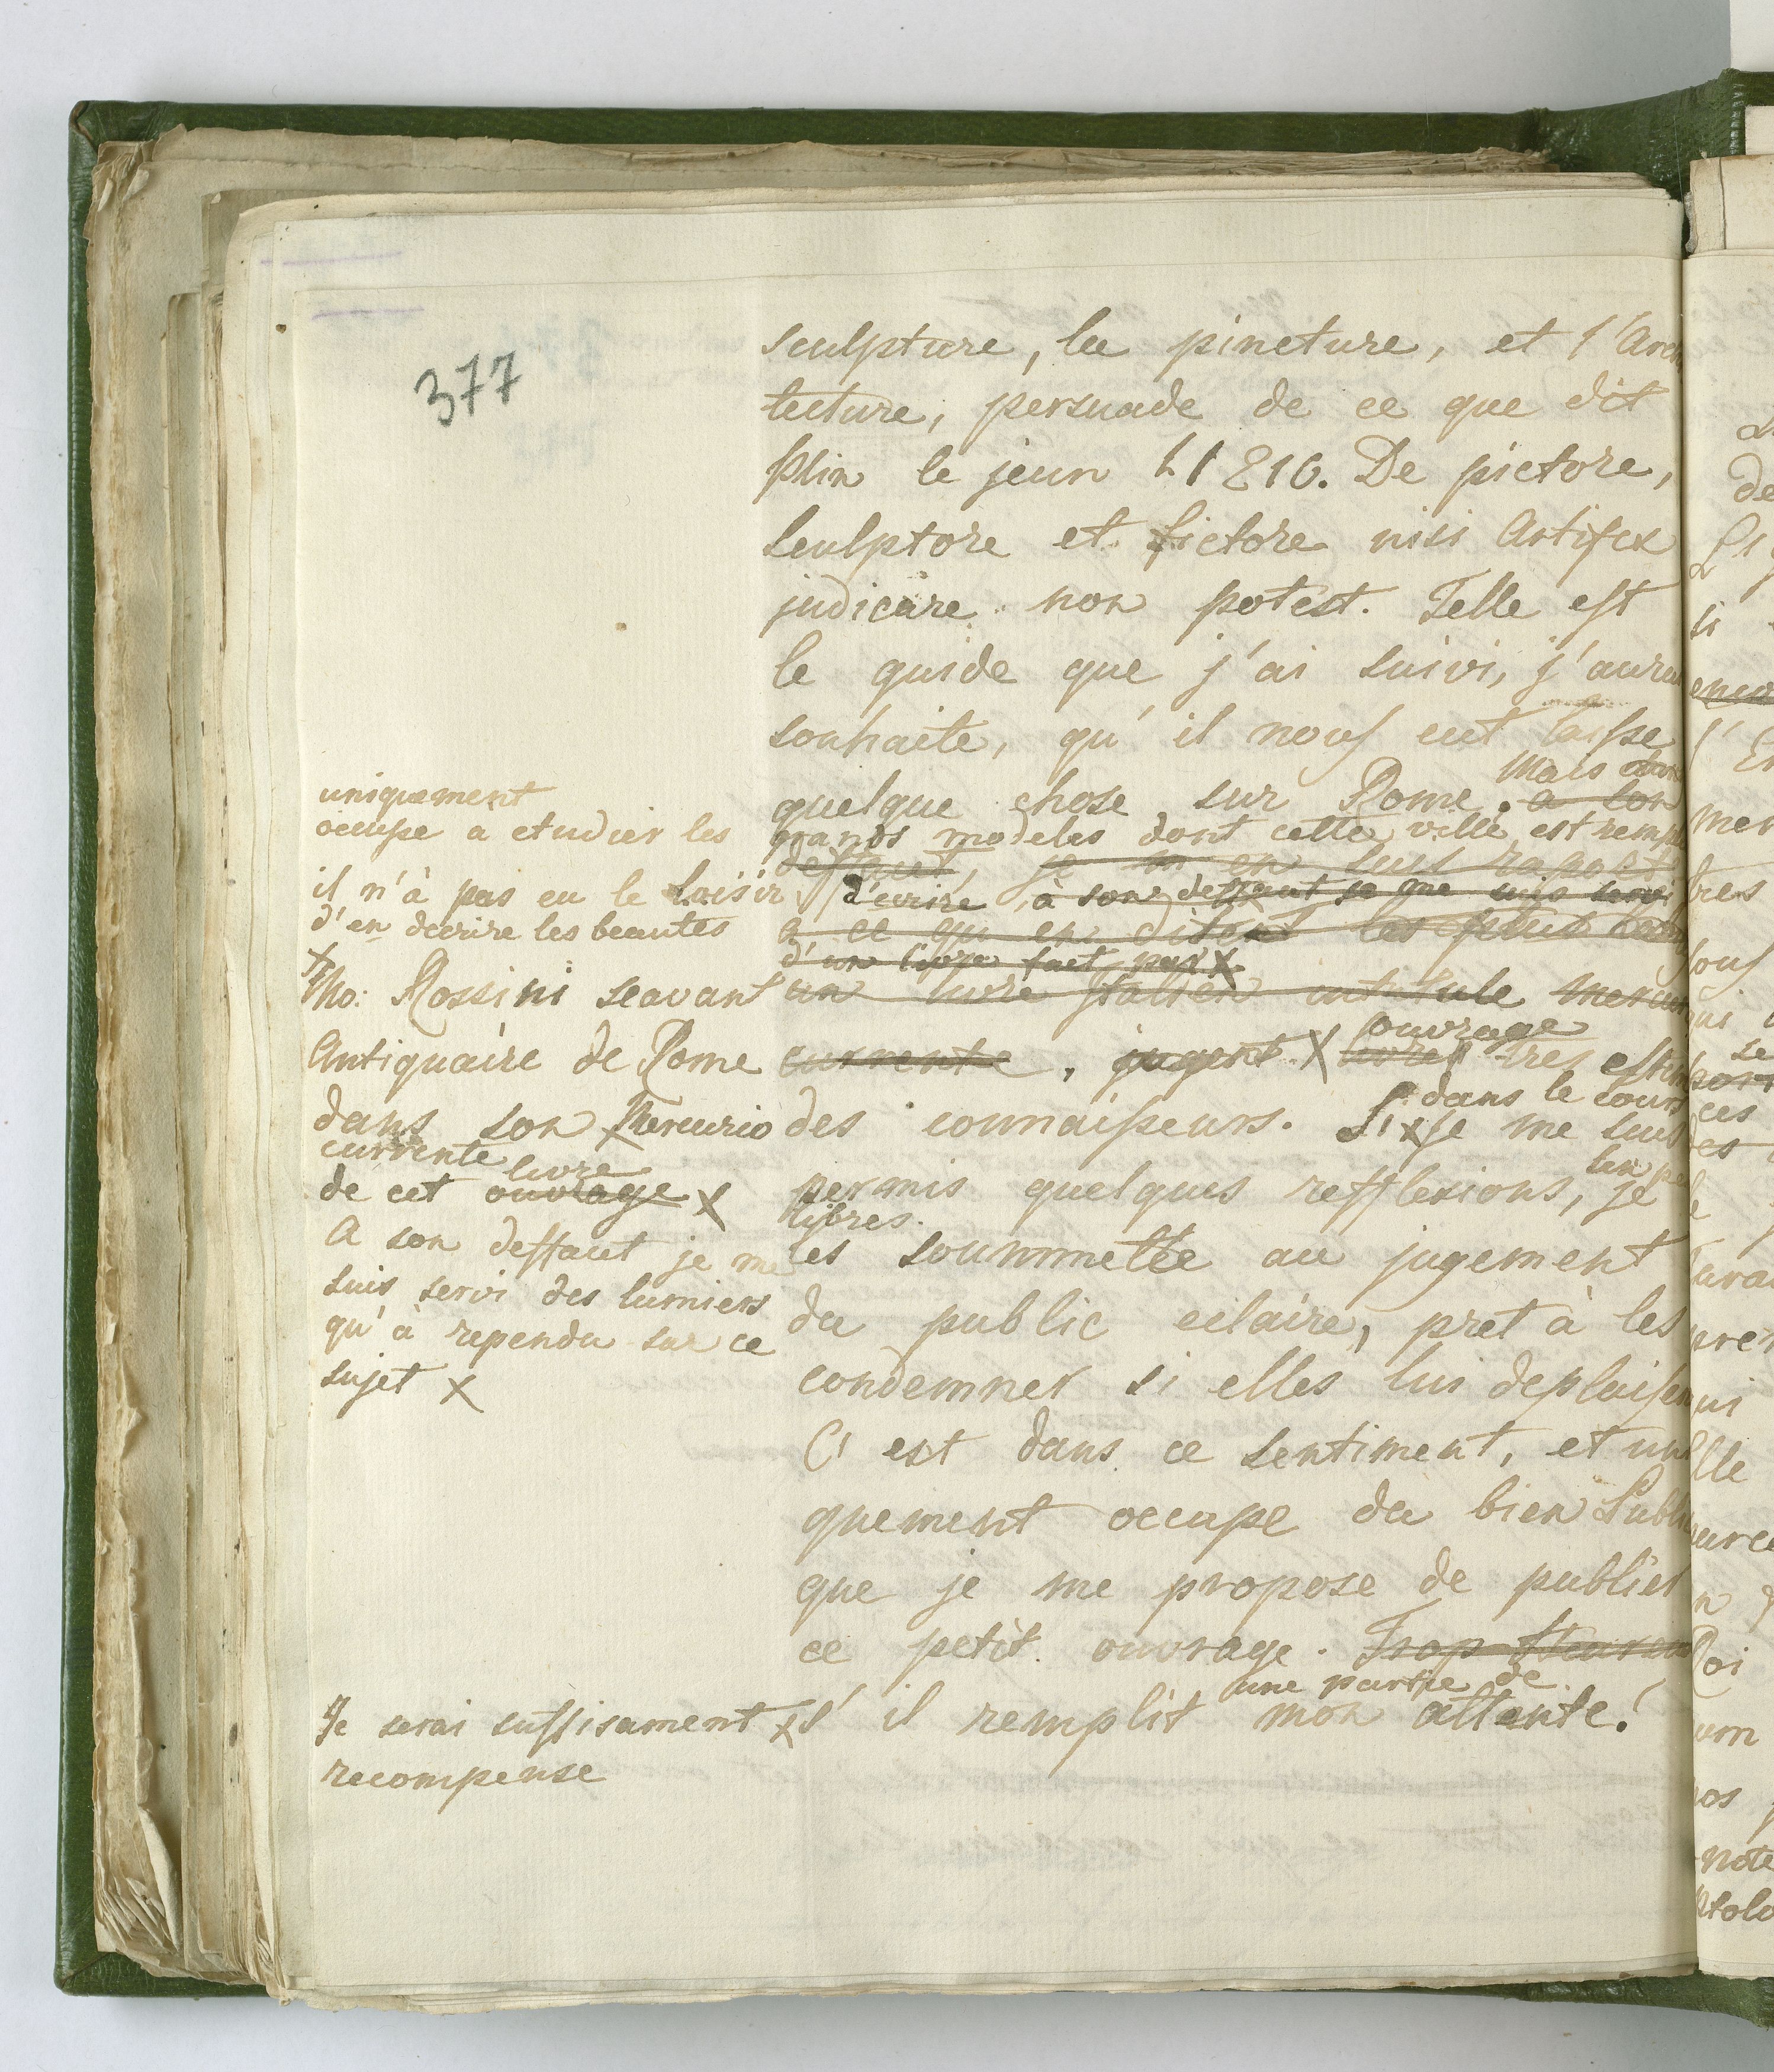 377
sculpture, la pincture, et l'Arch
tecture, persuade de ce que dit
Plin le jeun L1 E10. De pictore,
sculptore et fictore nisi Artifex
judicare non potest. Telle est
le guide que j'ai suivi, j'aura
souhaite, qu'il nous eut laisse
Mais
quelque chose sur Rome. a son
grands modeles dont cette ville est rempl
deffaut, je m'en suis raport
d'ecrire, à son deffaut je me suis servi
a ce qu'en disent les plus
d'un livre fait par X
un livre Italien intitule Mercur
ouvrage
currente, jugent X livre tres estim
dans le cours
des connaisseurs. Si x je me suis
un pe
permis quelques refflexions, je
libres.
les soummetée au jugement
du public eclaire, pret à les
condemner si elles lui deplaisen
C'est dans ce sentiment, et uni
quement occupe du bien Publi
que je me propose de publier
ce petit ouvrage. Trop heureux
une partie de
s'il remplit mon attente!
uniquement
occupe a etudier les
il n'à pas eu le loisir
d'en decrire les beautes
X
Tho: Rossini scavant
Antiquaire de Rome
dans son Mercurio
currente
livre
de cet ouvrage X
A son deffaut je me
suis servi des lumiers
qu'à rependu sur ce
sujet X
Je serai suffisament X
recompense